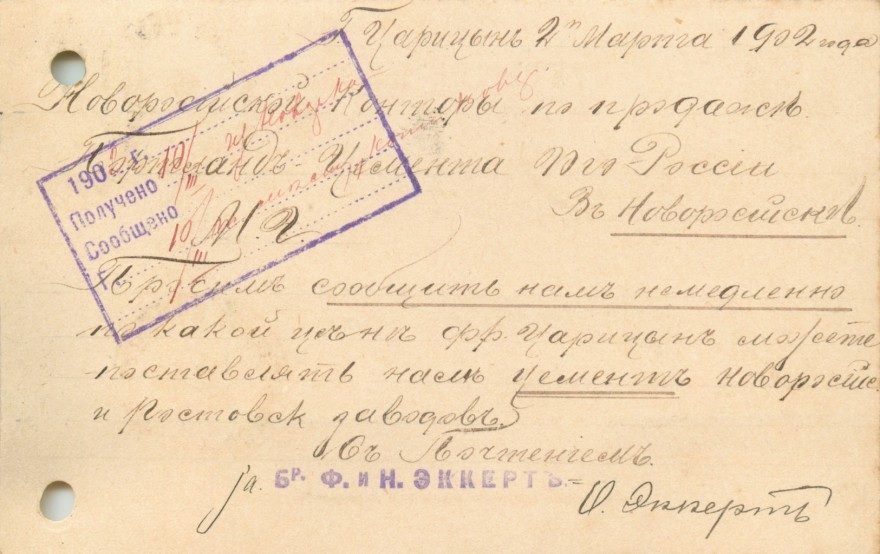 Г. Царицынъ 2го Марта 1902 года
Новороссійской Конторѣ по продажѣ
Портландъ Цемента Юго-Россіи
Въ Новороссійскѣ.
М. г.
Просимъ сообщить намъ немедленно
по какой цѣнѣ фр. Царицынъ можете
поставлять намъ цементъ Новороссійс.
и Ростовск заводовъ.
Съ Почтеніемъ.
ја. БР. Ф. И Н. ЭККЕРТЪ.
О. Эккертъ
1902 г.
Получено 10/III
Сообщено 10/III